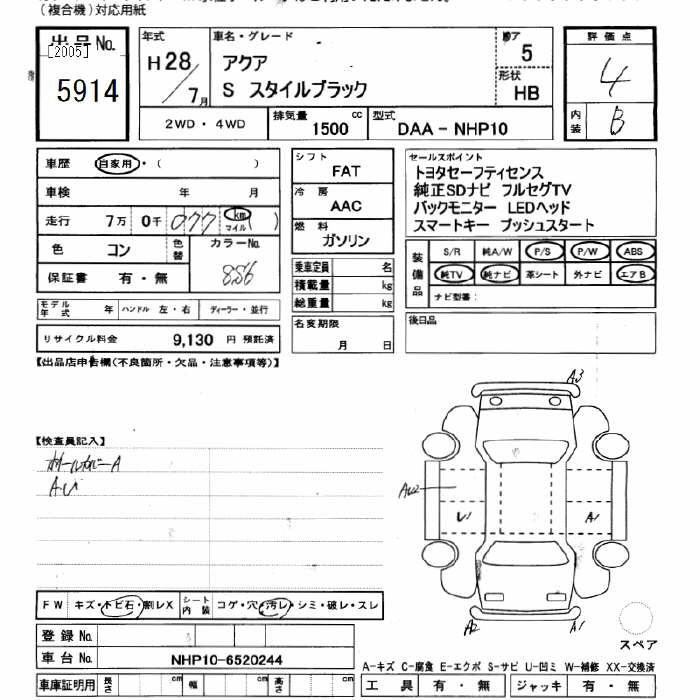 (複合機)対応用紙
出品No.
[2005]
5914
年式
H28/7月
車名・グレード
アクア
S スタイルブラック
ドア
5
形状
HB
評価点
4
内装
B
2WD・4WD
排気量
1500 cc
型式
DAA - NHP10
車歴 自家用・( )
車検 年 月
走行 7万 0千 077 km マイル ( )
色 コン
色替
カラーNo.
856
保証書 有・無
モデル年式 年 ハンドル 左・右 ディーラー・並行
リサイクル料金 9,130 円 預託済
シフト
FAT
冷房
AAC
燃料
ガソリン
乗車定員 名
積載量 kg
総重量 kg
名変期限
月 日
セールスポイント
トヨタセーフティセンス
純正SDナビ フルセグTV
バックモニター LEDヘッド
スマートキー プッシュスタート
装備品
S/R 純A/W P/S P/W ABS
純TV 純ナビ 革シート 外ナビ エアB
ナビ型番:
後日品
【出品店申告欄(不良箇所・欠品・注意事項等)】
【検査員記入】
ホイールカバーA
AU
A3
AU2
U1
A1
A2
A1
スペア
FW キズ・トビ石・割レX
シート内装 コゲ・穴・汚レ・シミ・破レ・スレ
登録No.
車台No. NHP10-6520244
車庫証明用 長さ cm 幅 cm 高さ cm
A-キズ C-腐食 E-エクボ S-サビ U-凹ミ W-補修 XX-交換済
工具 有・無 ジャッキ 有・無